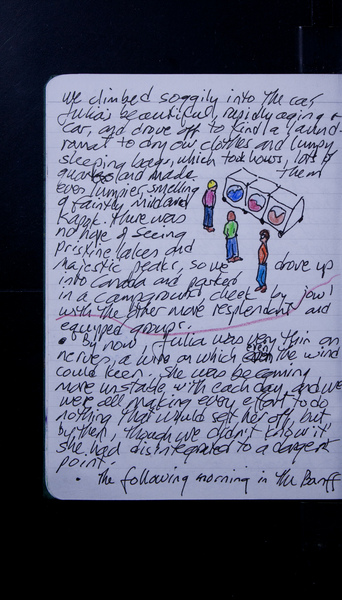 we climbed soggily into the car,
Julia's beautiful, rapidly aging
car, and drove off to find a laund-
romat to dry our clothes and lumpy
sleeping bags, which took hours, lots of
quarters and made them
even lumpier, smelling
faintly mildewed
Kapok. There was
no hope of seeing
pristine lakes and
majestic peaks, so we drove up
into Canada and parked
in a campground, cheek by jowl
with the other more resplendent and
equipped groups.
• By now, Julia was very thin on
nerves, a wire on which even the wind
could keen. She was becoming
more unstable with each day and we
were all making every effort to do
nothing that would set her off, but
by then, though we didn't know it
she had disintegrated to a danger
point.
• The following morning in the Banff